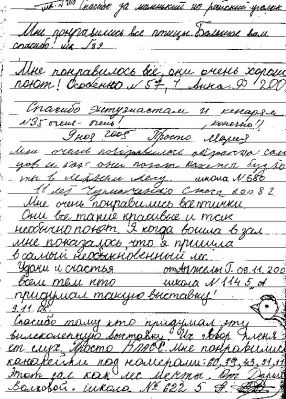 шк. №209 Спасибо за маленький но райский уголок
Мне понравились все птицы. Большое вам
спасибо! шк. 189
Мне понравилось всё, они очень хорошо
поют! Особенно №57, 7 Анна. Ф! 200
Спасибо энтузиастам и кенарям
№35 очень-очень! , конечно!
9 ноя 2008 Просто Мария
Мне очень понравилось
они поют кажется будто
ты в летнем лесу. школа №680
11 лет 2008 г
Мне очень понравились все птички.
Они все такие красивые и так
необычно поют. Я когда вошла в зал
мне показалось, что я пришла
в самый необыкновенный лес.
Удачи и счастья от Анжелы Г. 09.11.200
всем тем кто школа №1145, А
придумал такую выставку!
9.11.08.
Спасибо тому кто придумал эту
великолепную выставку. Их
от слух. Просто Мне понравились
канарейки под номерами: 60, 59, 43,
Этот час как лес мечты. От Дарьи
Волковой. школа № 622 5